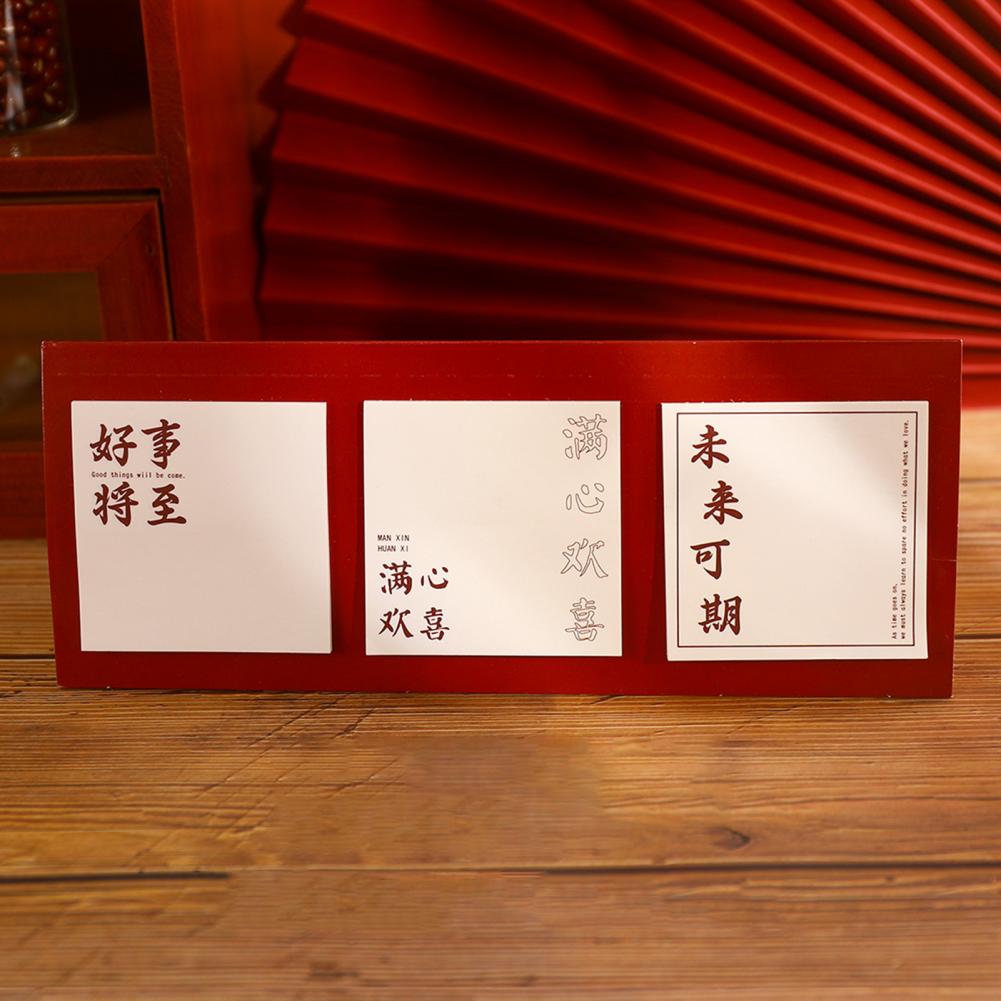 好事
Good things wiil be come.
将至
满心欢喜
MAN XIN
HUAN XI
满心
欢喜
未来可期
As time goes on,
we must always learn to spare no effort in doing what we love.